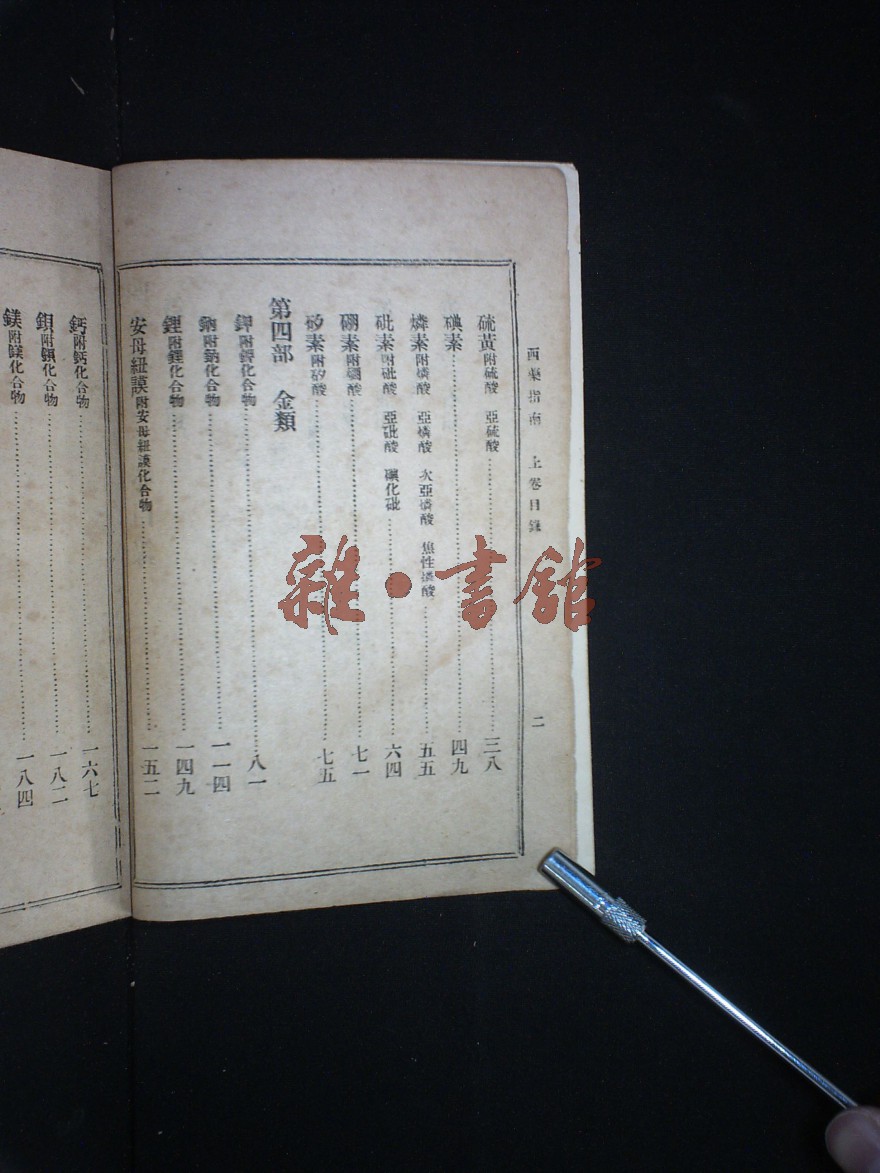 西藥指南 上卷目錄 二
硫黃附硫酸 亞硫酸 三八
碘素 四九
燐素附燐酸 亞燐酸 次亞燐酸 焦性燐酸 五五
砒素附砒酸 亞砒酸 碘化砒 六四
硼素附硼酸 七一
矽素附矽酸 七五
第四部 金類
鉀附鉀化合物 八一
鈉附鈉化合物 一一四
鋰附鋰化合物 一四九
安母紐謨附安母紐謨化合物 一五二
鈣附鈣化合物 一六七
鋇附鋇化合物 一八二
鎂附鎂化合物 一八四
雜·書館